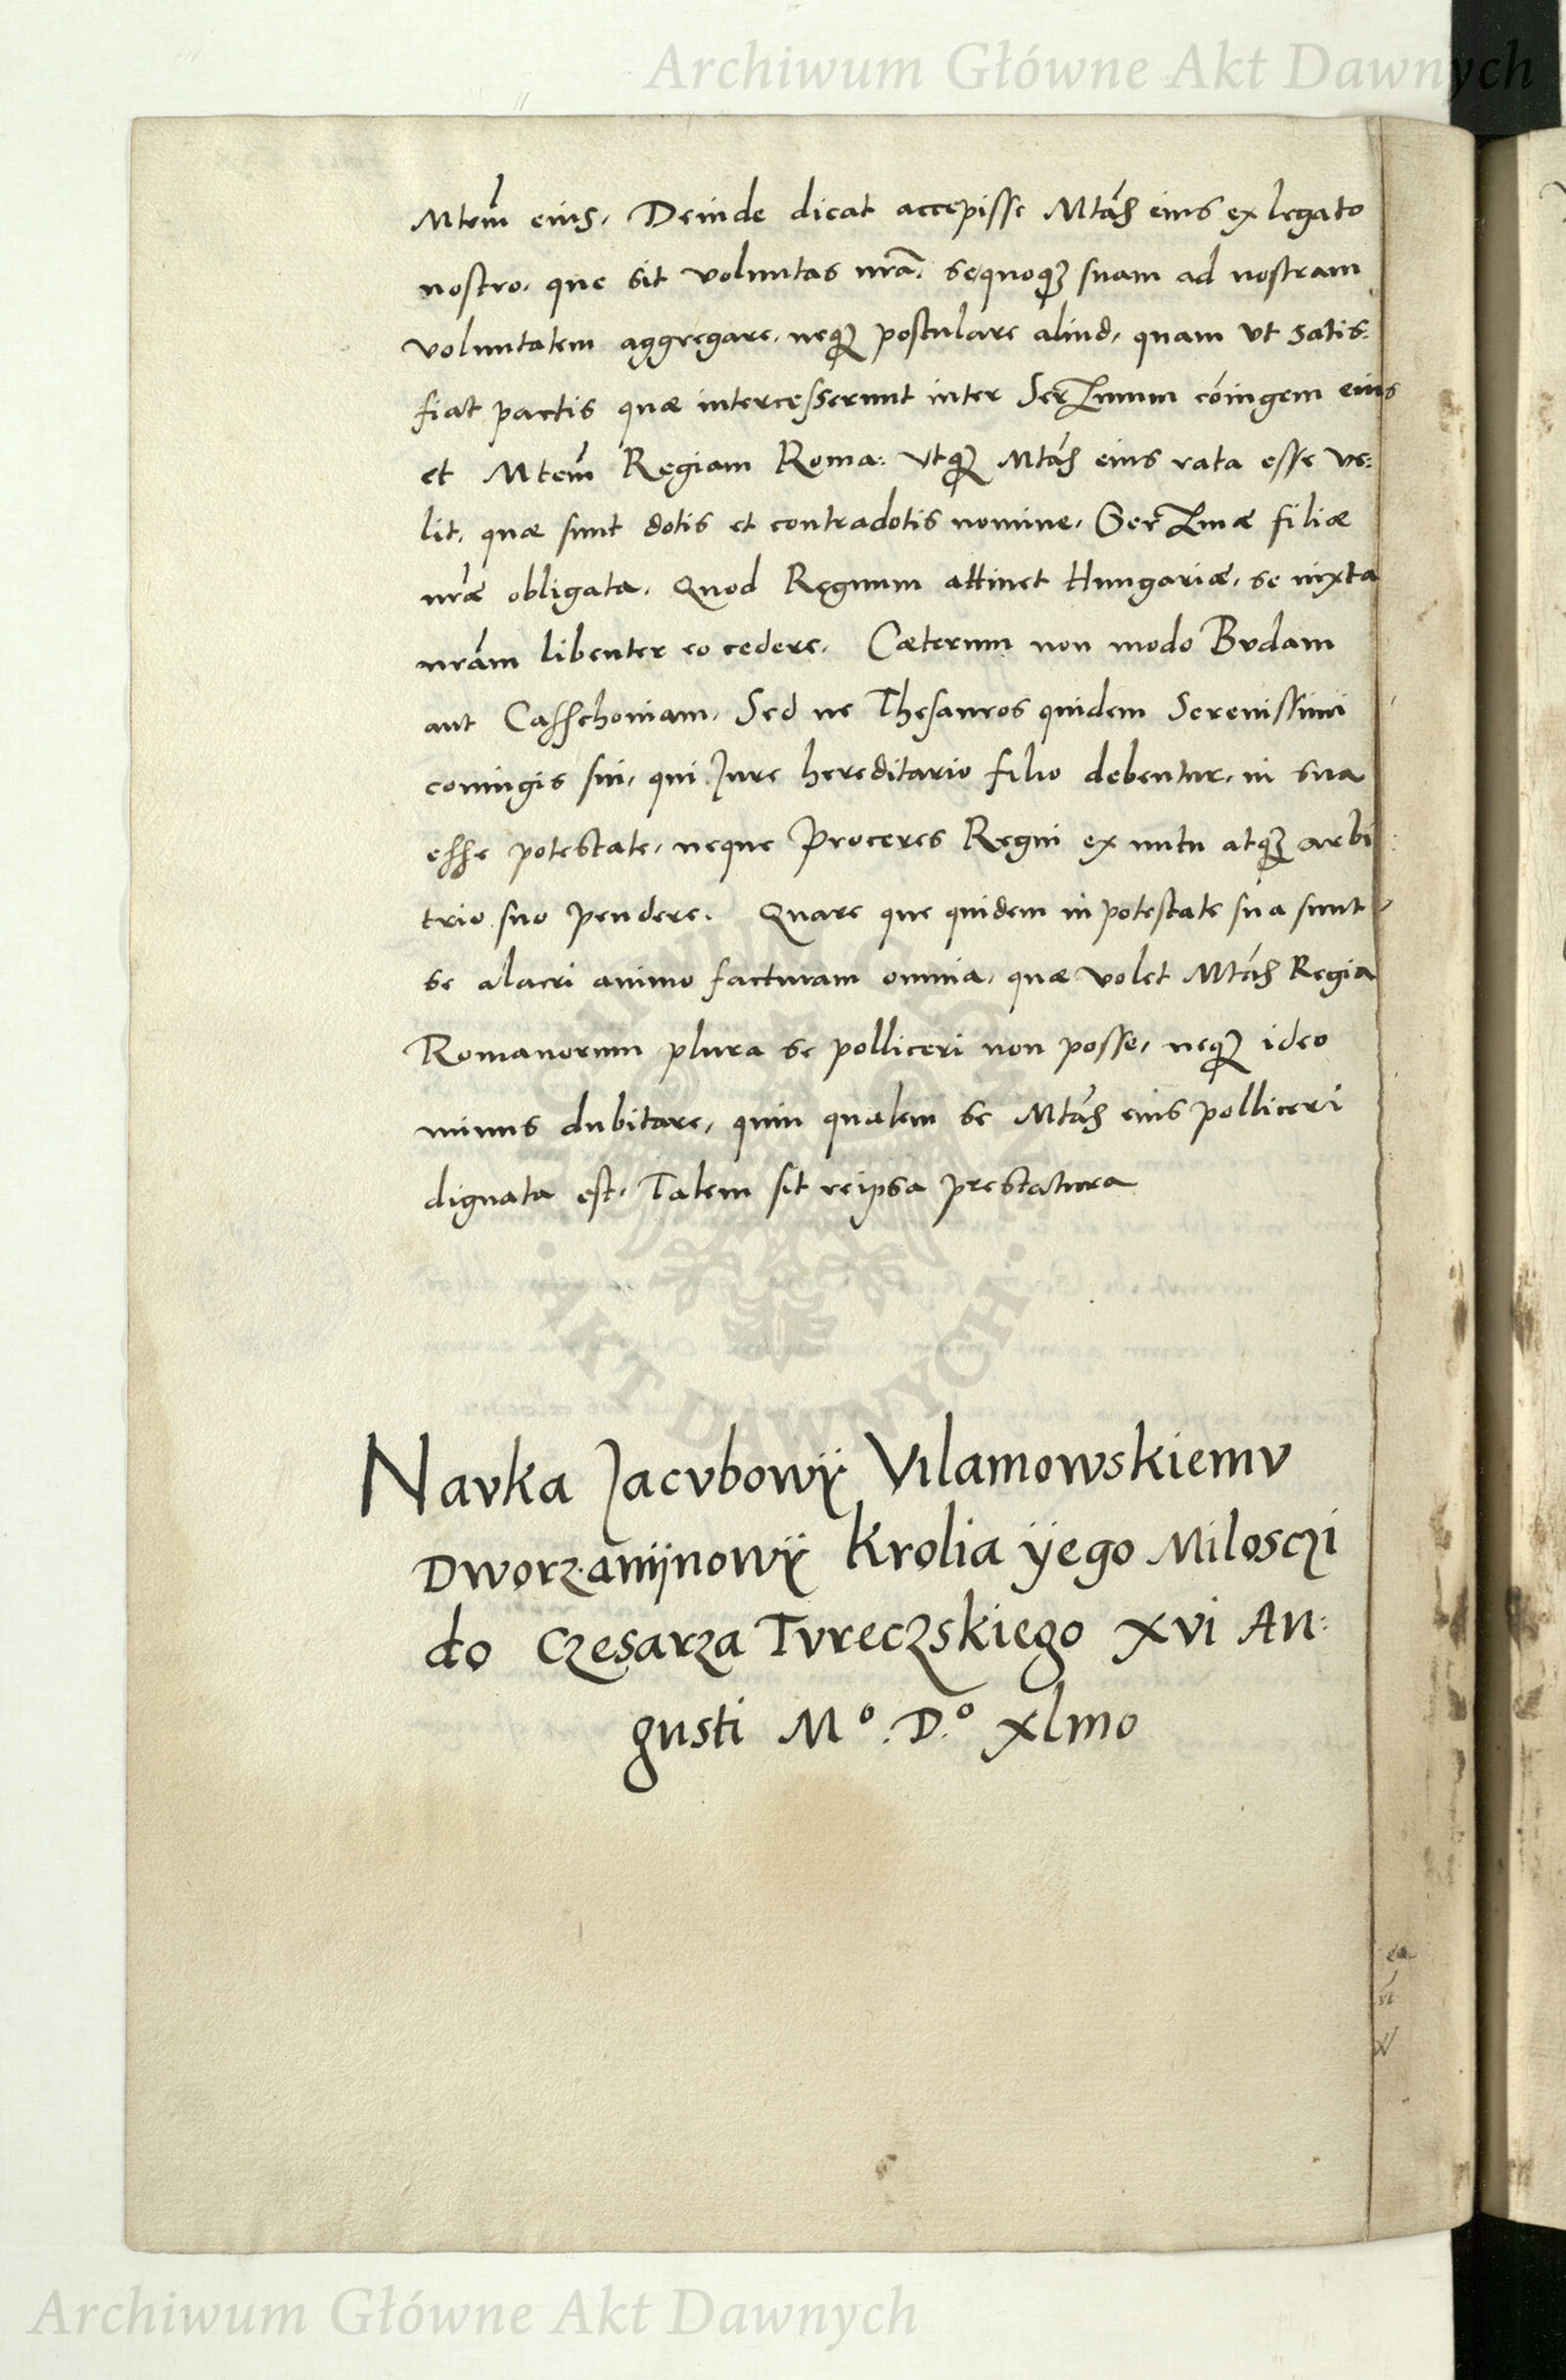 Archiwum Główne Akt Dawnych
Mtem̄ eius, Deinde dicat accepisse Mtās eius ex legato
nostro, que sit voluntas nrā, se quoq; suam ad nostram
voluntatem aggregare, neq; postulare aliud, quam vt satis:
fiat pactis quæ intercesserunt inter Serᷓmum cōiugem eius
et Mtem̄ Regiam Roma: vtq; Mtās eius rata esse ve:
lit, quæ sunt dotis et contradotis nomine, Serᷓmæ filiæ
nr̄æ obligata, Quod Regnum attinet Hungariæ, se iuxta
nrām libenter eo cedere, Cæterum non modo Bvdam
aut Casschouiam, Sed ne Thesauros quidem Serenissimi
coniugis sui, qui Jure hereditario filio debentur, in sua
esse potestate, neque Proceres Regni ex nutu atq; arbi
trio suo pendere. Quare que quidem in potestate sua sunt
se alacri animo facturam omnia, quæ volet Mtās Regia
Romanorum plura se polliceri non posse, neq; ideo
minus dubitare, quin qualem se Mtās eius polliceri
dignata est, Talem sit reipsa prestatura
Navka Jacvbowÿ Vilamowskiemv
Dworzanijnowÿ Krolia ÿego Milosczi
do Czesarza Tvreczskiego xvi Au:
gusti Mº. D.º xlmo
AKT DAWNYCH
Archiwum Główne Akt Dawnych